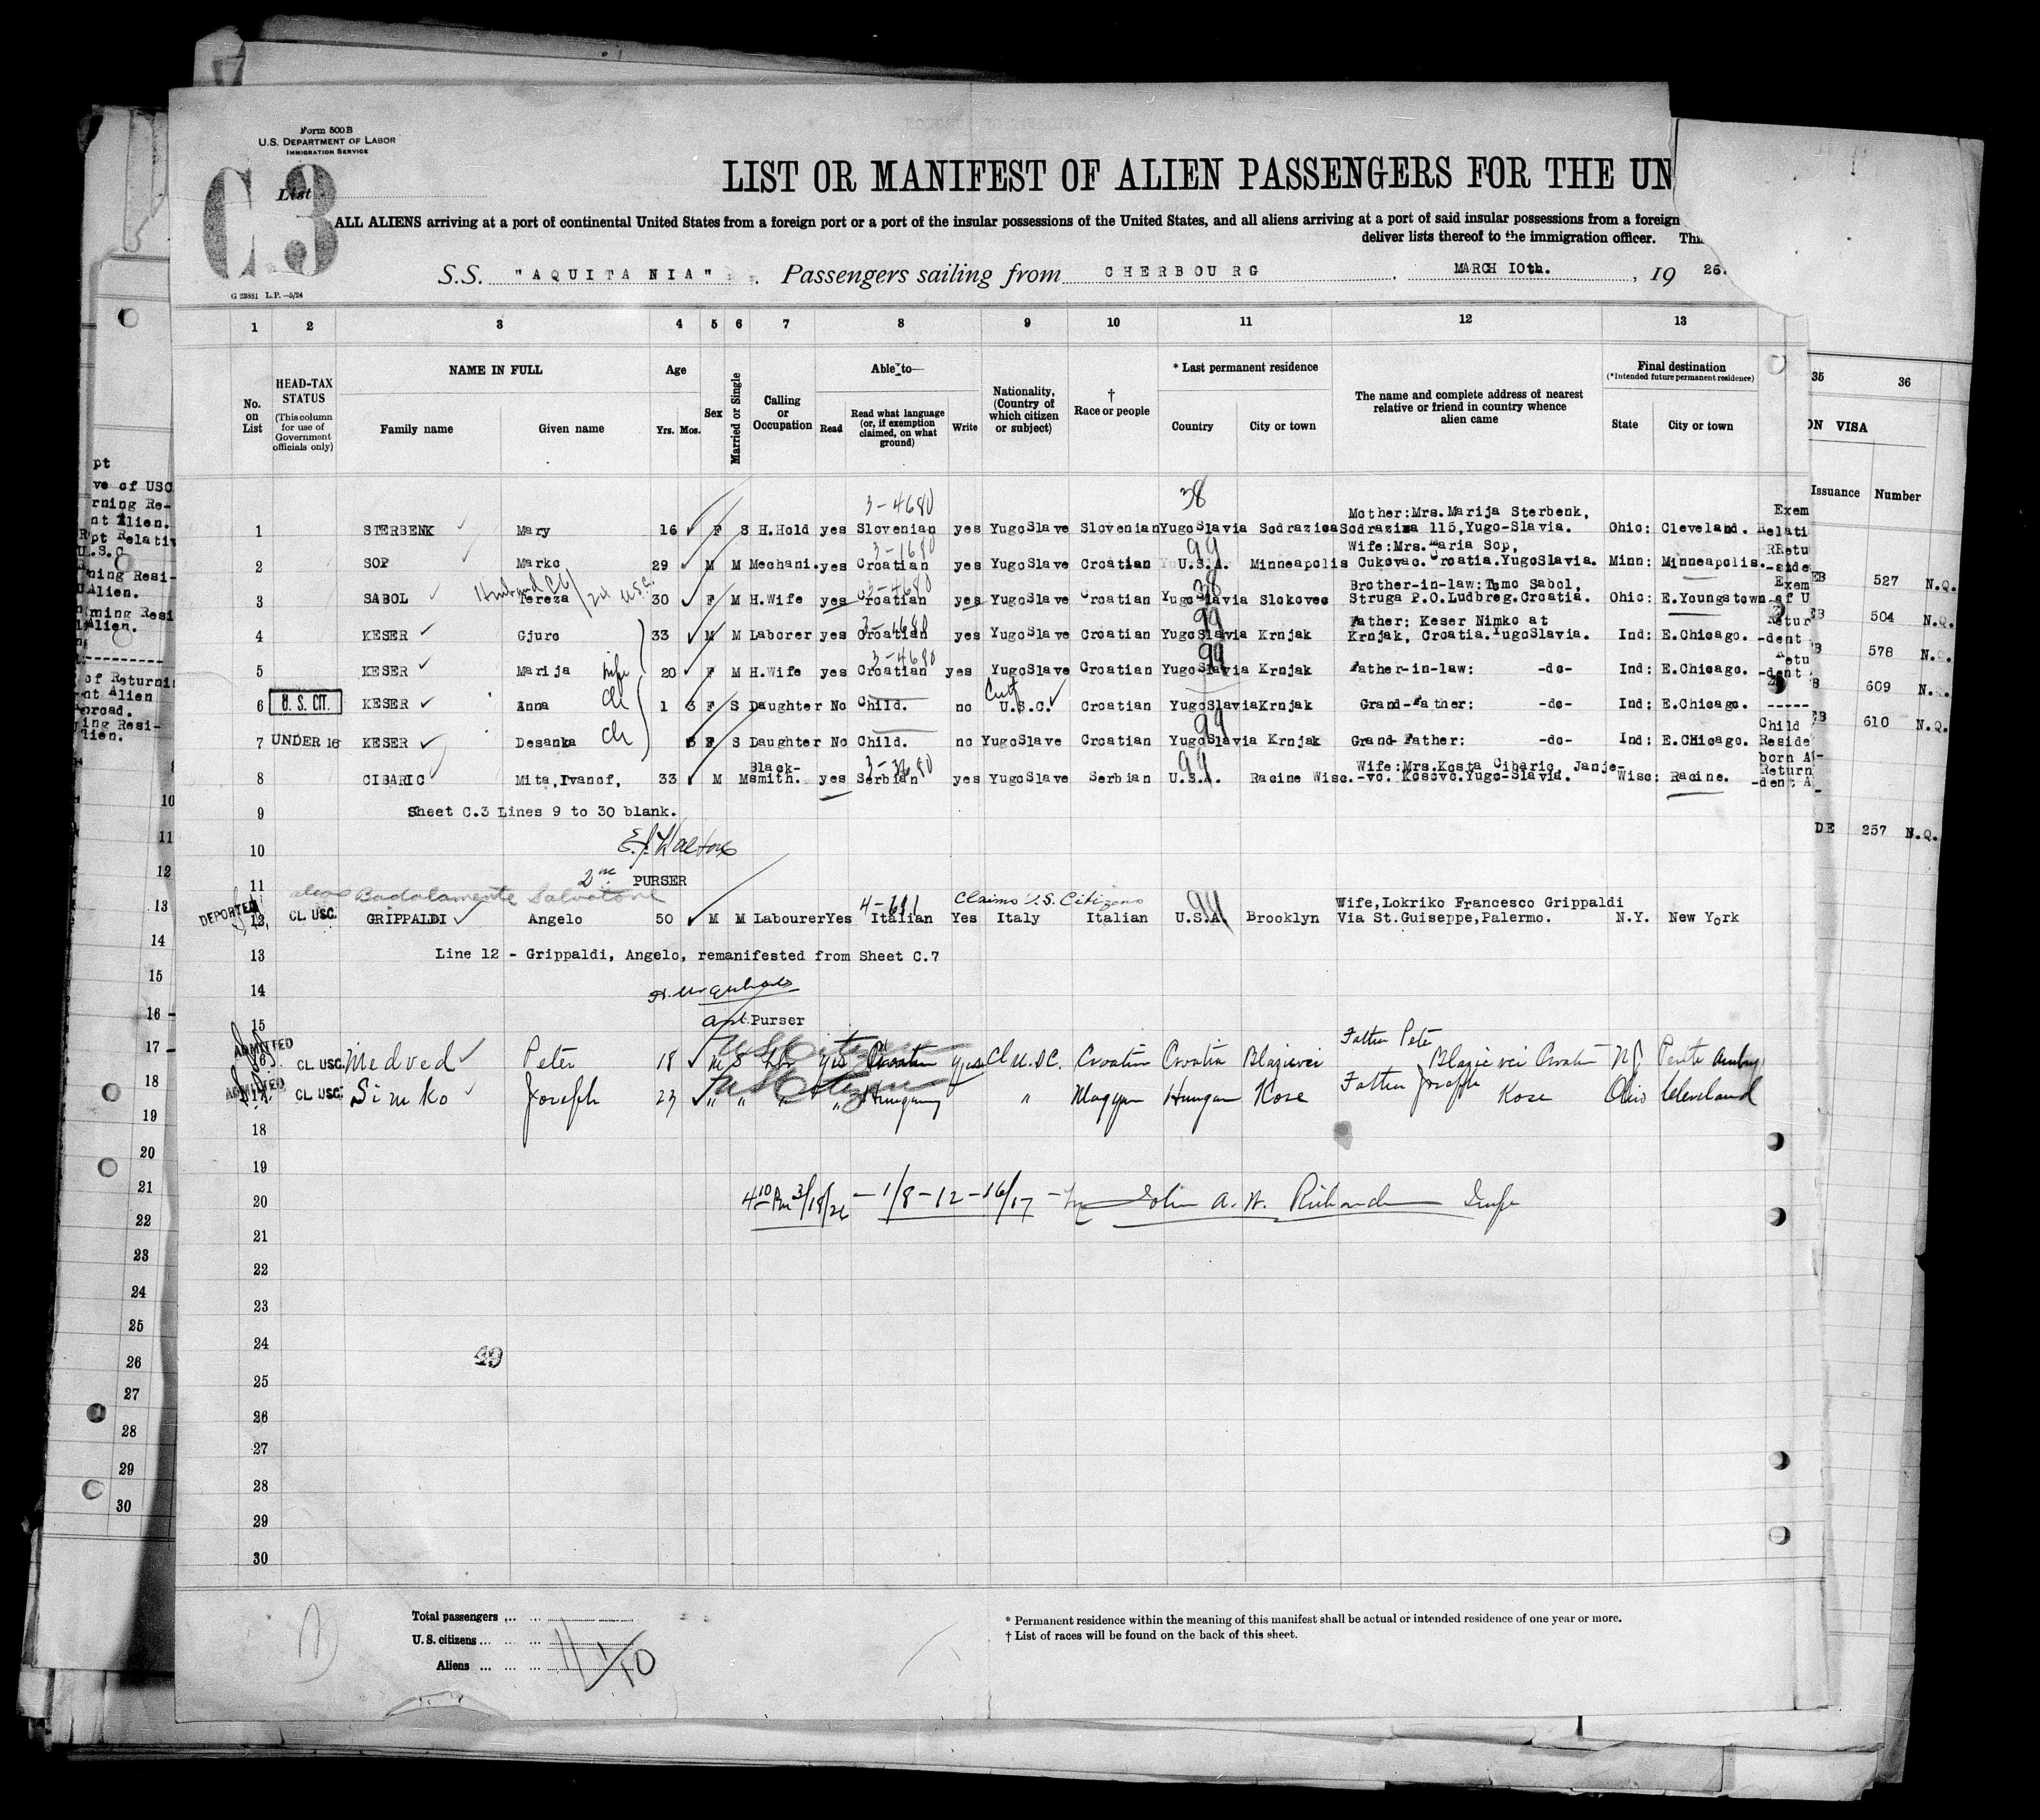 Form 500 B
U.S. DEPARTMENT OF LABOR
IMMIGRATION SERVICE
C3
List
LIST OR MANIFEST OF ALIEN PASSENGERS FOR THE UN
ALL ALIENS arriving at a port of continental United States from a foreign port or a port of the insular possessions of the United States, and all aliens arriving at a port of said insular possessions from a foreign
deliver lists thereof to the immigration officer.
S.S. "AQUITANIA" Passengers sailing from CHERBOURG, MARCH 10th., 19 26.
G 23881 L.P.—5/24
1 2 3 4 5 6 7 8 9 10 11 12 13
No. on List
HEAD-TAX STATUS (This column for use of Government officials only)
NAME IN FULL
Family name Given name
Age
Yrs. Mos.
Sex
Married or Single
Calling or Occupation
Able to—
Read Read what language (or, if exemption claimed, on what ground) Write
Nationality, (Country of which citizen or subject)
† Race or people
* Last permanent residence
Country City or town
The name and complete address of nearest relative or friend in country whence alien came
Final destination
(*Intended future permanent residence)
State City or town
35 36
ON VISA
Issuance Number
3-4680 38
Mother:Mrs.Marija Sterbenk,
1 STERBENK Mary 16 F S H.Hold yes Slovenian yes YugoSlave Slovenian YugoSlavia Sodrazica Sodrazixa 115,Yugo-Slavia. Ohio: Cleveland.
99 Wife:Mrs.Maria Sop,
2 SOP Marko 29 M M Mechani. yes Croatian yes YugoSlave Croatian U.S.A. Minneapolis Cukovac. Croatia.YugoSlavia. Minn: Minneapolis.
3-4680 38 Brother-in-law:Tomo Sabol,
3 SABOL Tereza 30 F M H.Wife yes Croatian yes YugoSlave Croatian YugoSlavia Slokovec Struga P.O.Ludbreg.Croatia. Ohio: E.Youngstown
3-4680 99 Father: Keser Nimko at
4 KESER Gjuro 33 M M Laborer yes Croatian yes YugoSlave Croatian YugoSlavia Krnjak Krnjak, Croatia.YugoSlavia. Ind: E.Chicago.
3-4680 99
5 KESER Marija wife 20 F M H.Wife yes Croatian yes YugoSlave Croatian YugoSlavia Krnjak Father-in-law: -do- Ind: E.Chicago.
6 U.S. CIT. KESER Anna Ch 1 3 F S Daughter No Child. no U.S.C. Croatian YugoSlavia Krnjak Grand-Father: -do- Ind: E.Chicago.
99
7 UNDER 16 KESER Desanka Ch F S Daughter No Child. no YugoSlave Croatian YugoSlavia Krnjak Grand-Father: -do- Ind: E.CHicago.
99 Wife:Mrs.Kosta Cibaric, Janje-
8 CIBARIC Mita,Ivanof, 33 M M Black-smith. yes Serbian yes YugoSlave Serbian U.S.A. Racine Wisc. -vo. Kosovo.Yugo-Slavia. Wisc: Racine.
527 N.Q.
504 N.Q.
578 N.Q.
609 N.Q.
610 N.Q.
257 N.Q.
9 Sheet C.3 Lines 9 to 30 blank.
10
2nd PURSER
11
alias Badalamente Salvatore
4-611 Claims U.S. Citizens 99
Wife,Lokriko Francesco Grippaldi
DEPORTED 12 CL USC. GRIPPALDI Angelo 50 M M Labourer Yes Italian Yes Italy Italian U.S.A. Brooklyn Via St.Guiseppe,Palermo. N.Y. New York
13 Line 12 - Grippaldi, Angelo, remanifested from Sheet C.7
14
15
Purser
US Citizen
Father Pete
ADMITTED 16 CL USC. Medved Peter 18 M S Lbr yes Croatin yes Cl U.SC. Croatin Croatia Blazievei Blazievci Croatia NJ. Perth Amboy
US Citizen
Father Joseph
ADMITTED 17 CL USC. Simko Joseph 23 " " " " Hungary " Magyar Hungar Kose Kose Ohio Cleveland
18
19
20 4 10 Pm 3/18/26 — 1/8 - 12 - 16/17 John A. W. Richards Insp
21
22
23
24
49
25
26
27
28
29
30
Total passengers
U.S. citizens
Aliens
11 1/10
* Permanent residence within the meaning of this manifest shall be actual or intended residence of one year or more.
† List of races will be found on the back of this sheet.